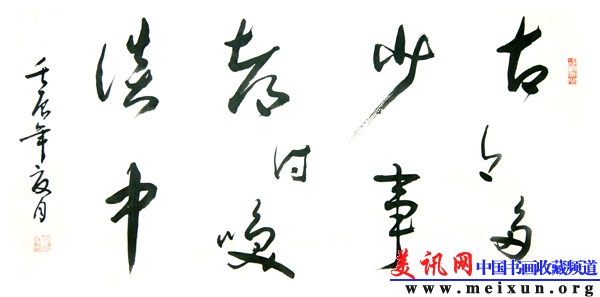 古今多
少事
都付咲
谈中
壬辰年夏月
美讯网 中国书画收藏频道
www.meixun.org